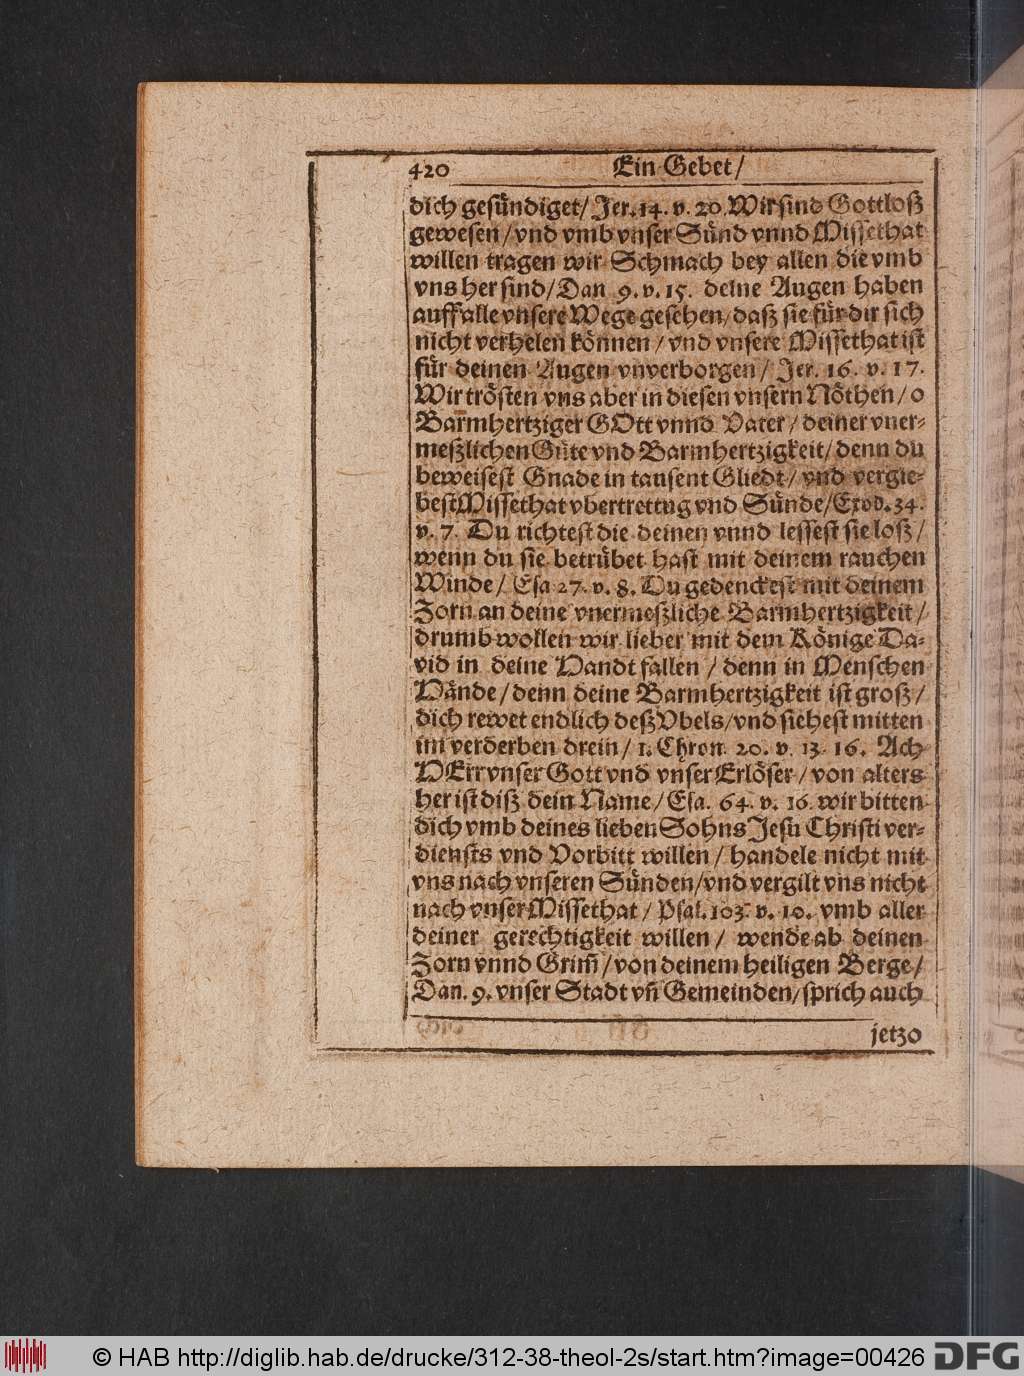 420 Ein Gebet/
dich gesündiget/ Jer. 14. v. 20. Wir sind Gottloß
gewesen/ vnd vmb vnser Sünd vnnd Missethat
willen tragen wir Schmach bey allen die vmb
vns her sind/ Dan 9. v. 15. deine Augen haben
auff alle vnsere Wege gesehen/ daß sie für dir sich
nicht verhelen können/ vnd vnsere Missethat ist
für deinen Augen vnverborgen/ Jer. 16. v. 17.
Wir trösten vns aber in diesen vnsern Nöthen/ o
Barmhertziger GOtt vnnd Vater/ deiner vner-
meßlichen Güte vnd Barmhertzigkeit/ denn du
beweisest Gnade in tausent Gliedt/ vnd vergie-
best Missethat vbertrettug vnd Sünde/ Exod. 34.
v. 7. Du richtest die deinen vnnd lessest sie loß/
wenn du sie betrübet hast mit deinem rauchen
Winde/ Esa 27. v. 8. Du gedenckest mit deinem
Zorn an deine vnermeßliche Barmhertzigkeit/
drumb wollen wir lieber mit dem Könige Da-
vid in deine Handt fallen/ denn in Menschen
Hände/ denn deine Barmhertzigkeit ist groß/
dich rewet endlich deß Vbels/ vnd siehest mitten
im verderben drein/ 1. Chron. 20. v. 13. 16. Ach
HErr vnser Gott vnd vnser Erlöser/ von alters
her ist diß dein Name/ Esa. 64. v. 16. wir bitten
dich vmb deines lieben Sohns Jesu Christi ver-
diensts vnd Vorbitt willen/ handele nicht mit
vns nach vnseren Sünden/ vnd vergilt vns nicht
nach vnser Missethat/ Psal. 103. v. 10. vmb aller
deiner gerechtigkeit willen/ wende ab deinen
Zorn vnnd Grim̃/ von deinem heiligen Berge/
Dan. 9. vnser Stadt vñ Gemeinden/ sprich auch
jetzo
© HAB http://diglib.hab.de/drucke/312-38-theol-2s/start.htm?image=00426 DFG